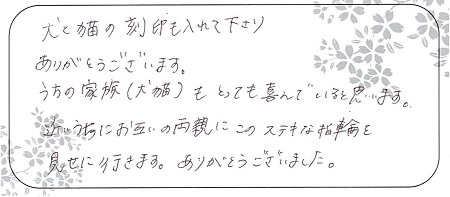 犬と猫の刻印も入れて下さり
ありがとうございます。
うちの家族(犬猫)もとっても喜んでいると思います。
近いうちにお互いの両親にこのステキな指輪を
見せに行きます。ありがとうございました。